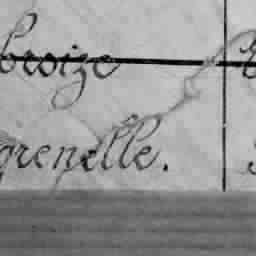 broize
grenelle.